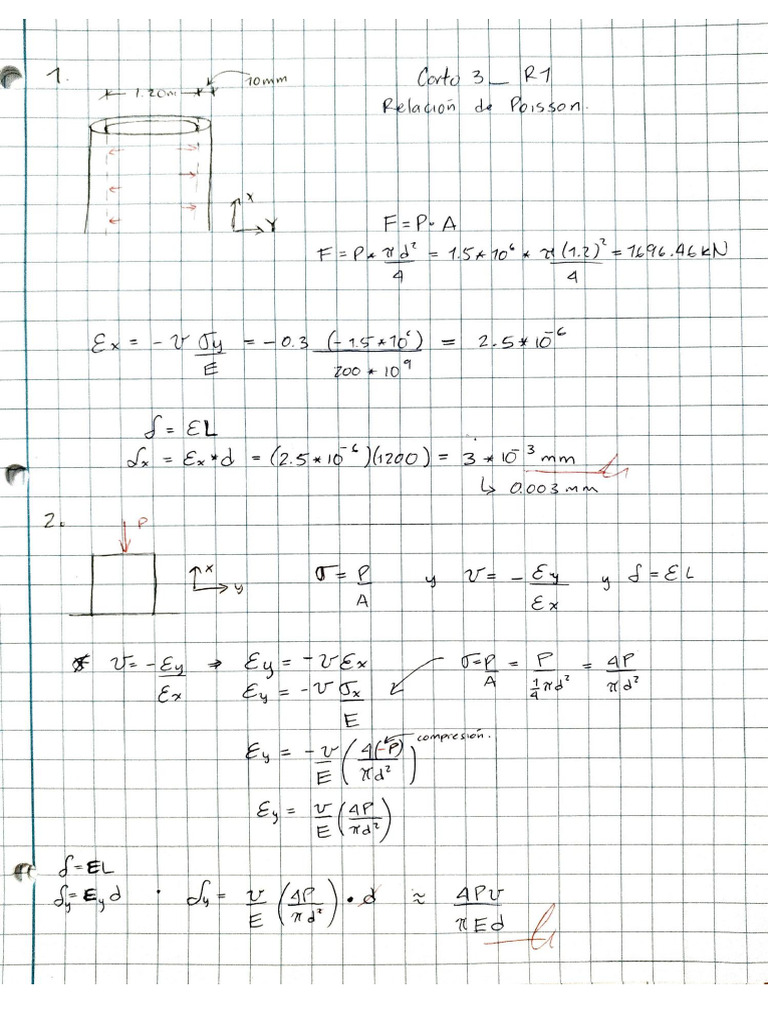 1.
10mm
1.20m
Corto 3_ R1
Relación de Poisson.
x
Y
F = P * A
F = P * πd²/4 = 1.5*10⁶ * π(1.2)²/4 = 1696.46 kN
Ɛx = -ν σy/E = -0.3 (-1.5*10⁶)/(200*10⁹) = 2.5*10⁻⁶
δ = ƐL
δx = Ɛx*d = (2.5*10⁻⁶)(1200) = 3*10⁻³ mm
↳ 0.003 mm
2.
P
x
y
σ = P/A y ν = -Ɛy/Ɛx y δ = ƐL
* ν = -Ɛy/Ɛx ⇒ Ɛy = -νƐx
σ = P/A = P/(¼πd²) = 4P/πd²
Ɛy = -ν σx/E
Ɛy = -ν/E (4(-P)/πd²) compresión.
Ɛy = ν/E (4P/πd²)
δ = ƐL
δy = Ɛy d · δy = ν/E (4P/πd²) • d ≈ 4Pν/πEd